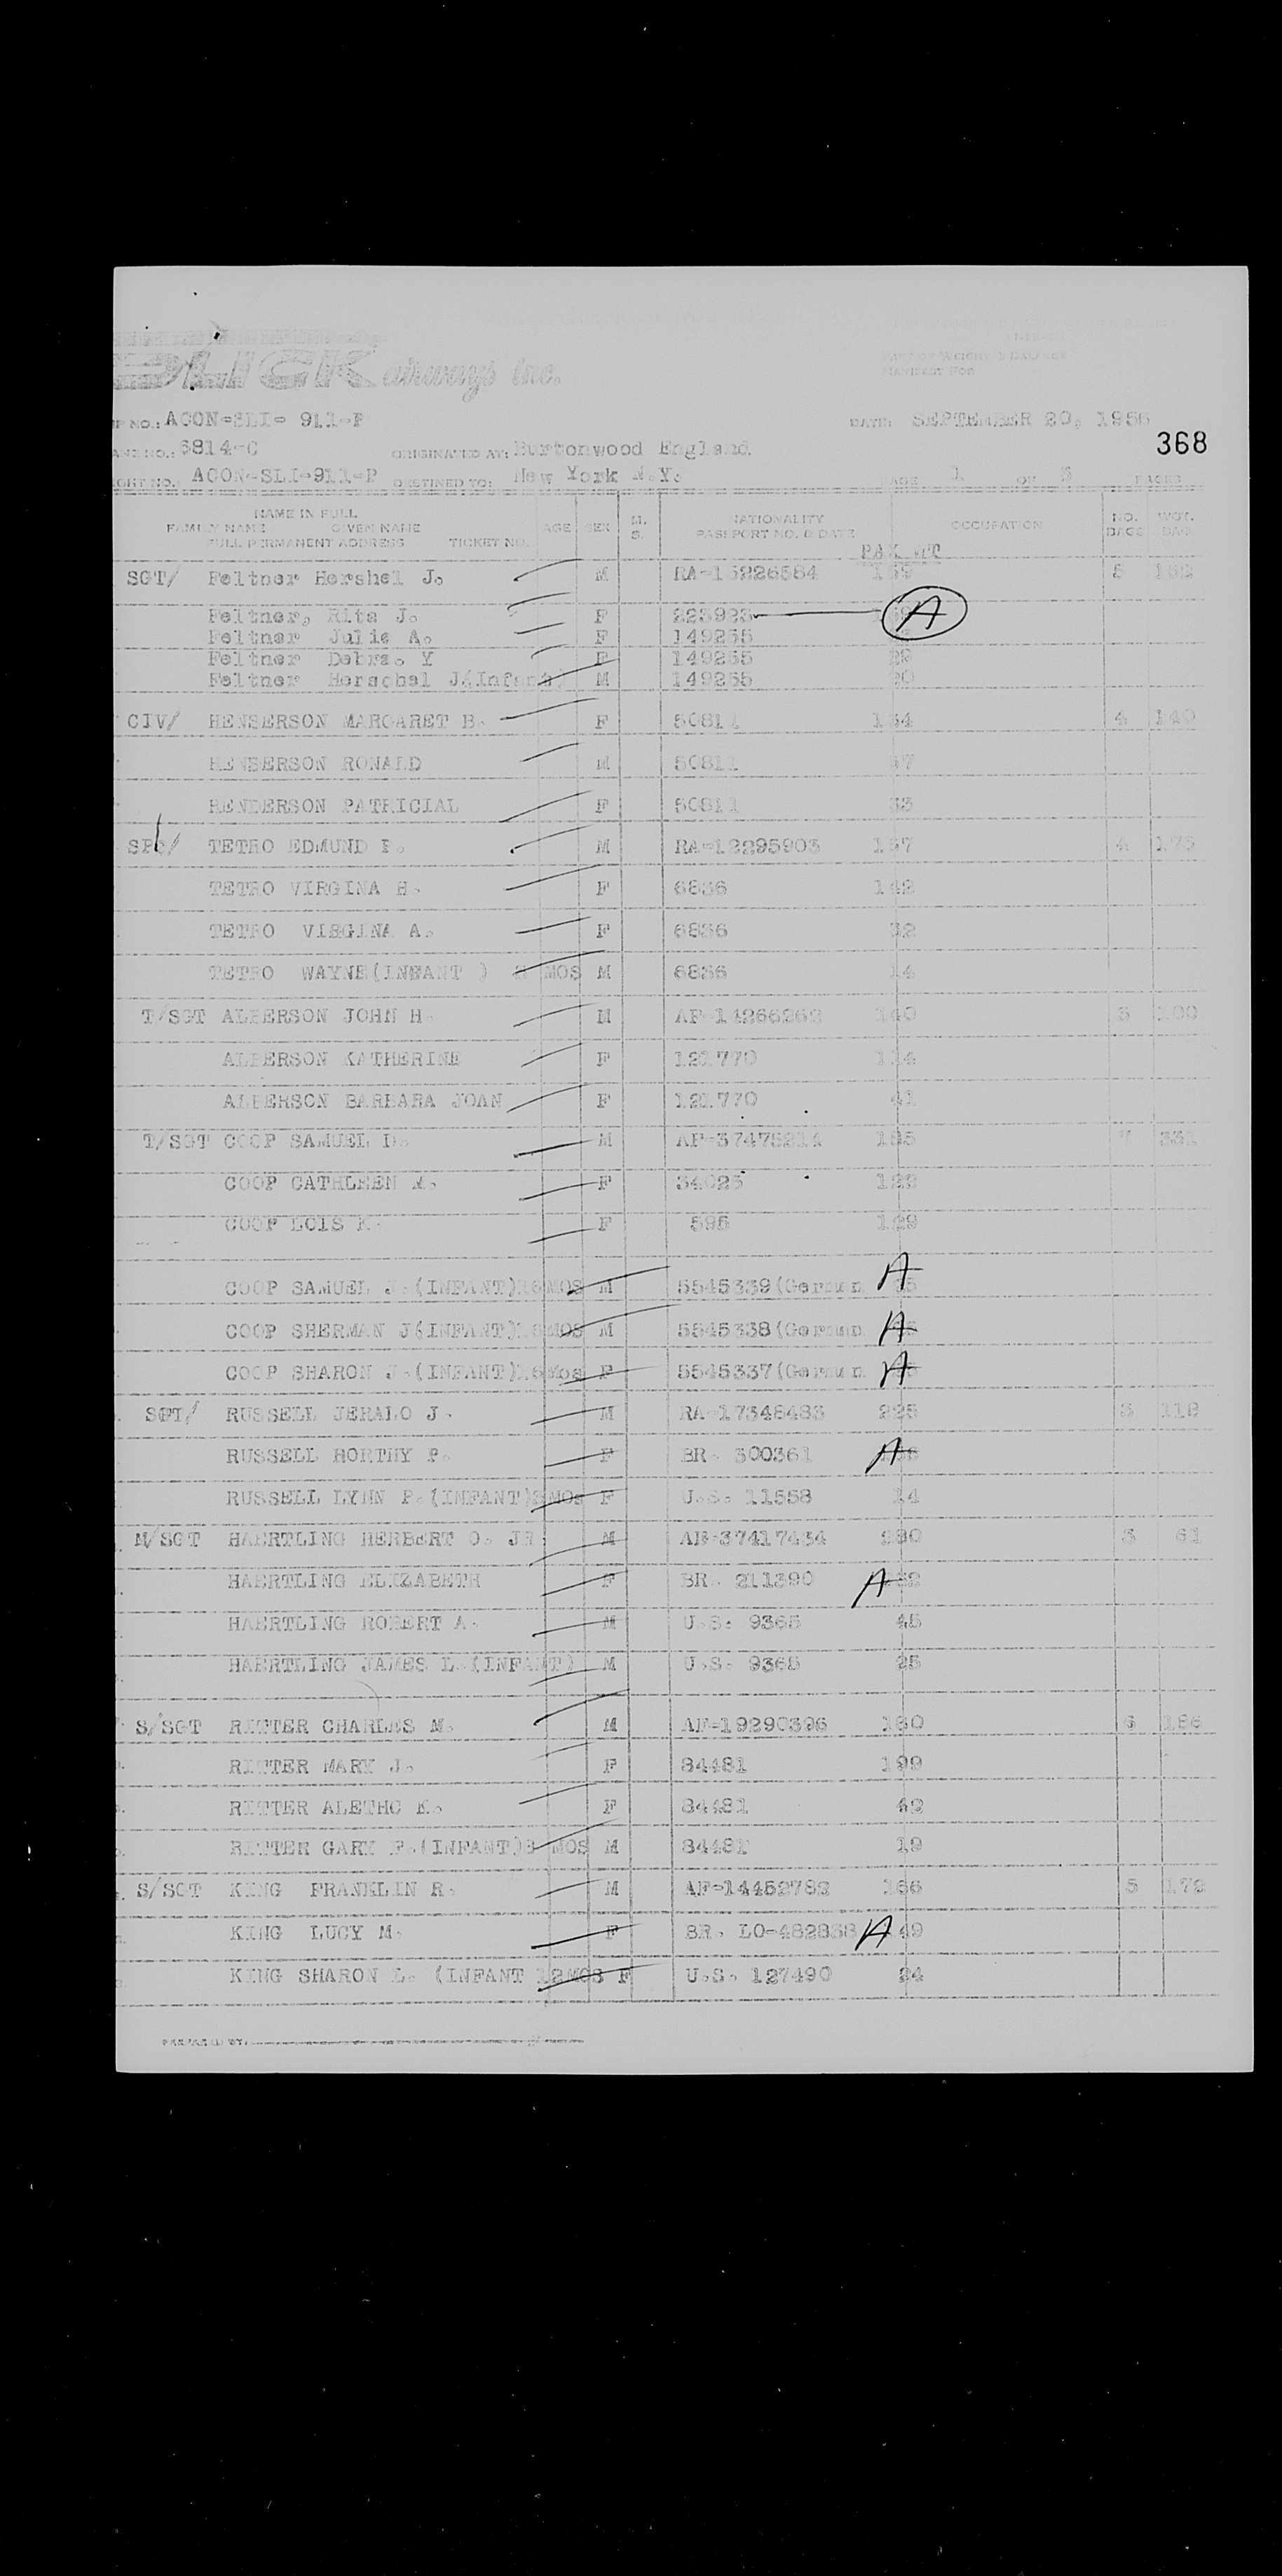 SLICK airways inc.
NO.: ACON-SLI- 911-F DATE: SEPTEMBER 20, 1956
NO.: 6814-C ORIGINATED AT: Burtonwood England. 368
NO. ACON-SLI-911-P DESTINED TO: New York N.Y. PAGE 1 OF 3 PAGES
NAME IN FULL
FAMILY NAME GIVEN NAME AGE SEX M. S. NATIONALITY PASSPORT NO. & DATE OCCUPATION NO. BAGS WGT. BAG.
FULL PERMANENT ADDRESS TICKET NO.
PAX WT
SGT/ Feltner Hershel J. M RA-15226584 5
Feltner, Rita J. F 223923 A
Feltner Julie A. F 149255
Feltner Debra. Y F 149255
Feltner Herschel J(Infant) M 149255 20
CIV/ HENSERSON MARGARET B. F 50811 134 4 140
HENDERSON RONALD M 50811 47
HENDERSON PATRICIAL F 50811 33
SP / TETRO EDMUND M RA-12295903 157 4 175
TETRO VIRGINA H. F 6836 142
TETRO VIRGINA A. F 6836 32
TETRO WAYNE(INFANT ) MOS M 6836 14
T/SGT ALBERSON JOHN H. M AF-14266262 140
ALBERSON KATHERINE F 121770 114
ALBERSON BARBARA JOAN F 121770 41
T/SGT COOP SAMUEL D. M AF-37475214 185 7
COOP CATHLEEN M. F 34025 122
COOP LOIS K. F 595 129
COOP SAMUEL J.(INFANT) MOS M 5545339(German A
COOP SHERMAN J(INFANT) MOS M 5545338(German A
COOP SHARON J.(INFANT) Mos F 5545337(German A
SGT/ RUSSELL JERALO J. M RA-17348483 225 3 118
RUSSELL HORTHY P. F BR. 300361 A
RUSSELL LYNN P.(INFANT) MOS F U.S. 11558 14
M/SGT HAERTLING HERBERT O. JR. M AF-37417434 230 3 61
HAERTLING ELIZABETH F BR. 211390 A
HAERTLING ROBERT A. M U.S. 9365 45
HAERTLING JAMES L.(INFANT) M U.S. 9365 25
S/SGT RITTER CHARLES M. M AF-19290396 180 6 186
RITTER MARY J. F 84481 199
RITTER ALETHO K. F 84481 42
RITTER GARY F.(INFANT) MOS M 84481 19
S/SGT KING FRANKLIN R. M AF-14452782 166 5 172
KING LUCY M. F BR. LO-482838 A
KING SHARON L. (INFANT 12MOS F U.S. 127490 24
PREPARED BY: